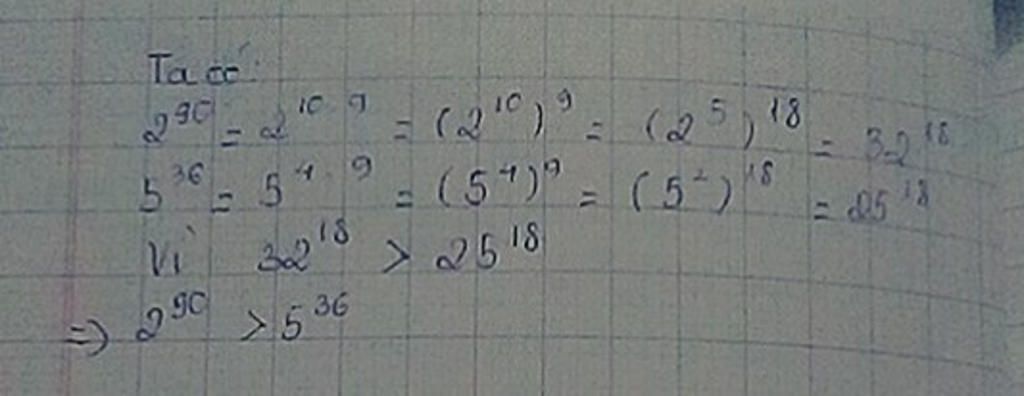 Ta có:
2^90 = 2^10.9 = (2^10)^9 = (2^5)^18 = 32^18
5^36 = 5^4.9 = (5^4)^9 = (5^2)^18 = 25^18
Vì 32^18 > 25^18
=> 2^90 > 5^36